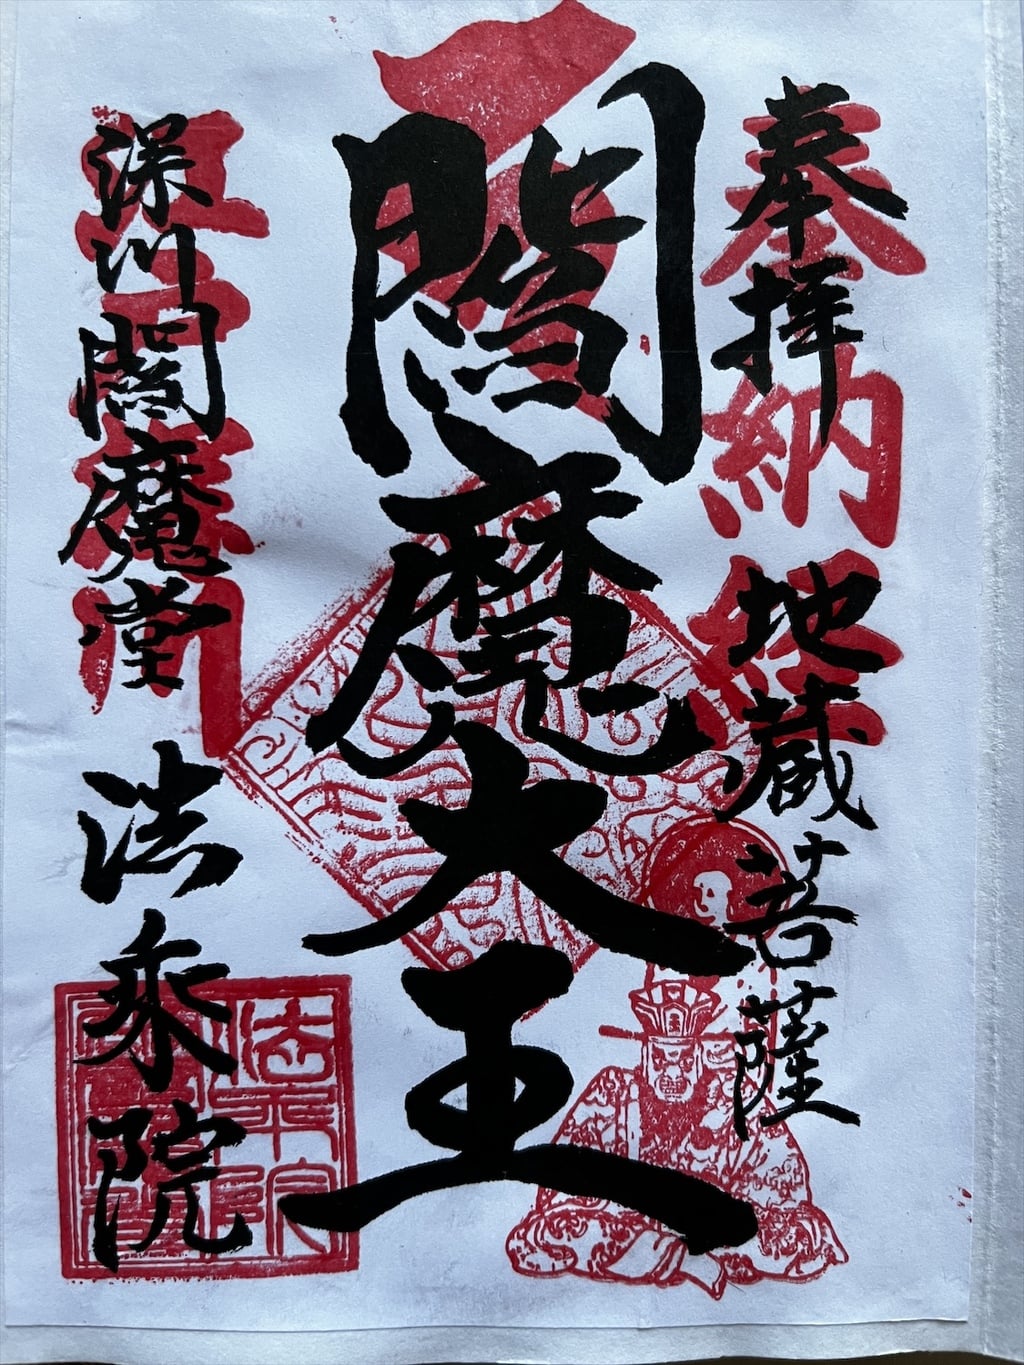 奉拝 地蔵菩薩
奉納経
閻魔大王
深川閻魔堂 法乗院
法乗院